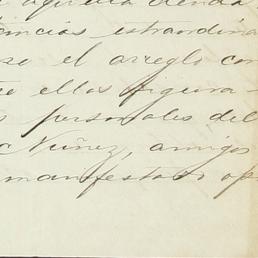 aquella deuda
incias estraordina
se el arreglo con
e ellos figura
s personales del
Nuñez, amigos
manifestado op